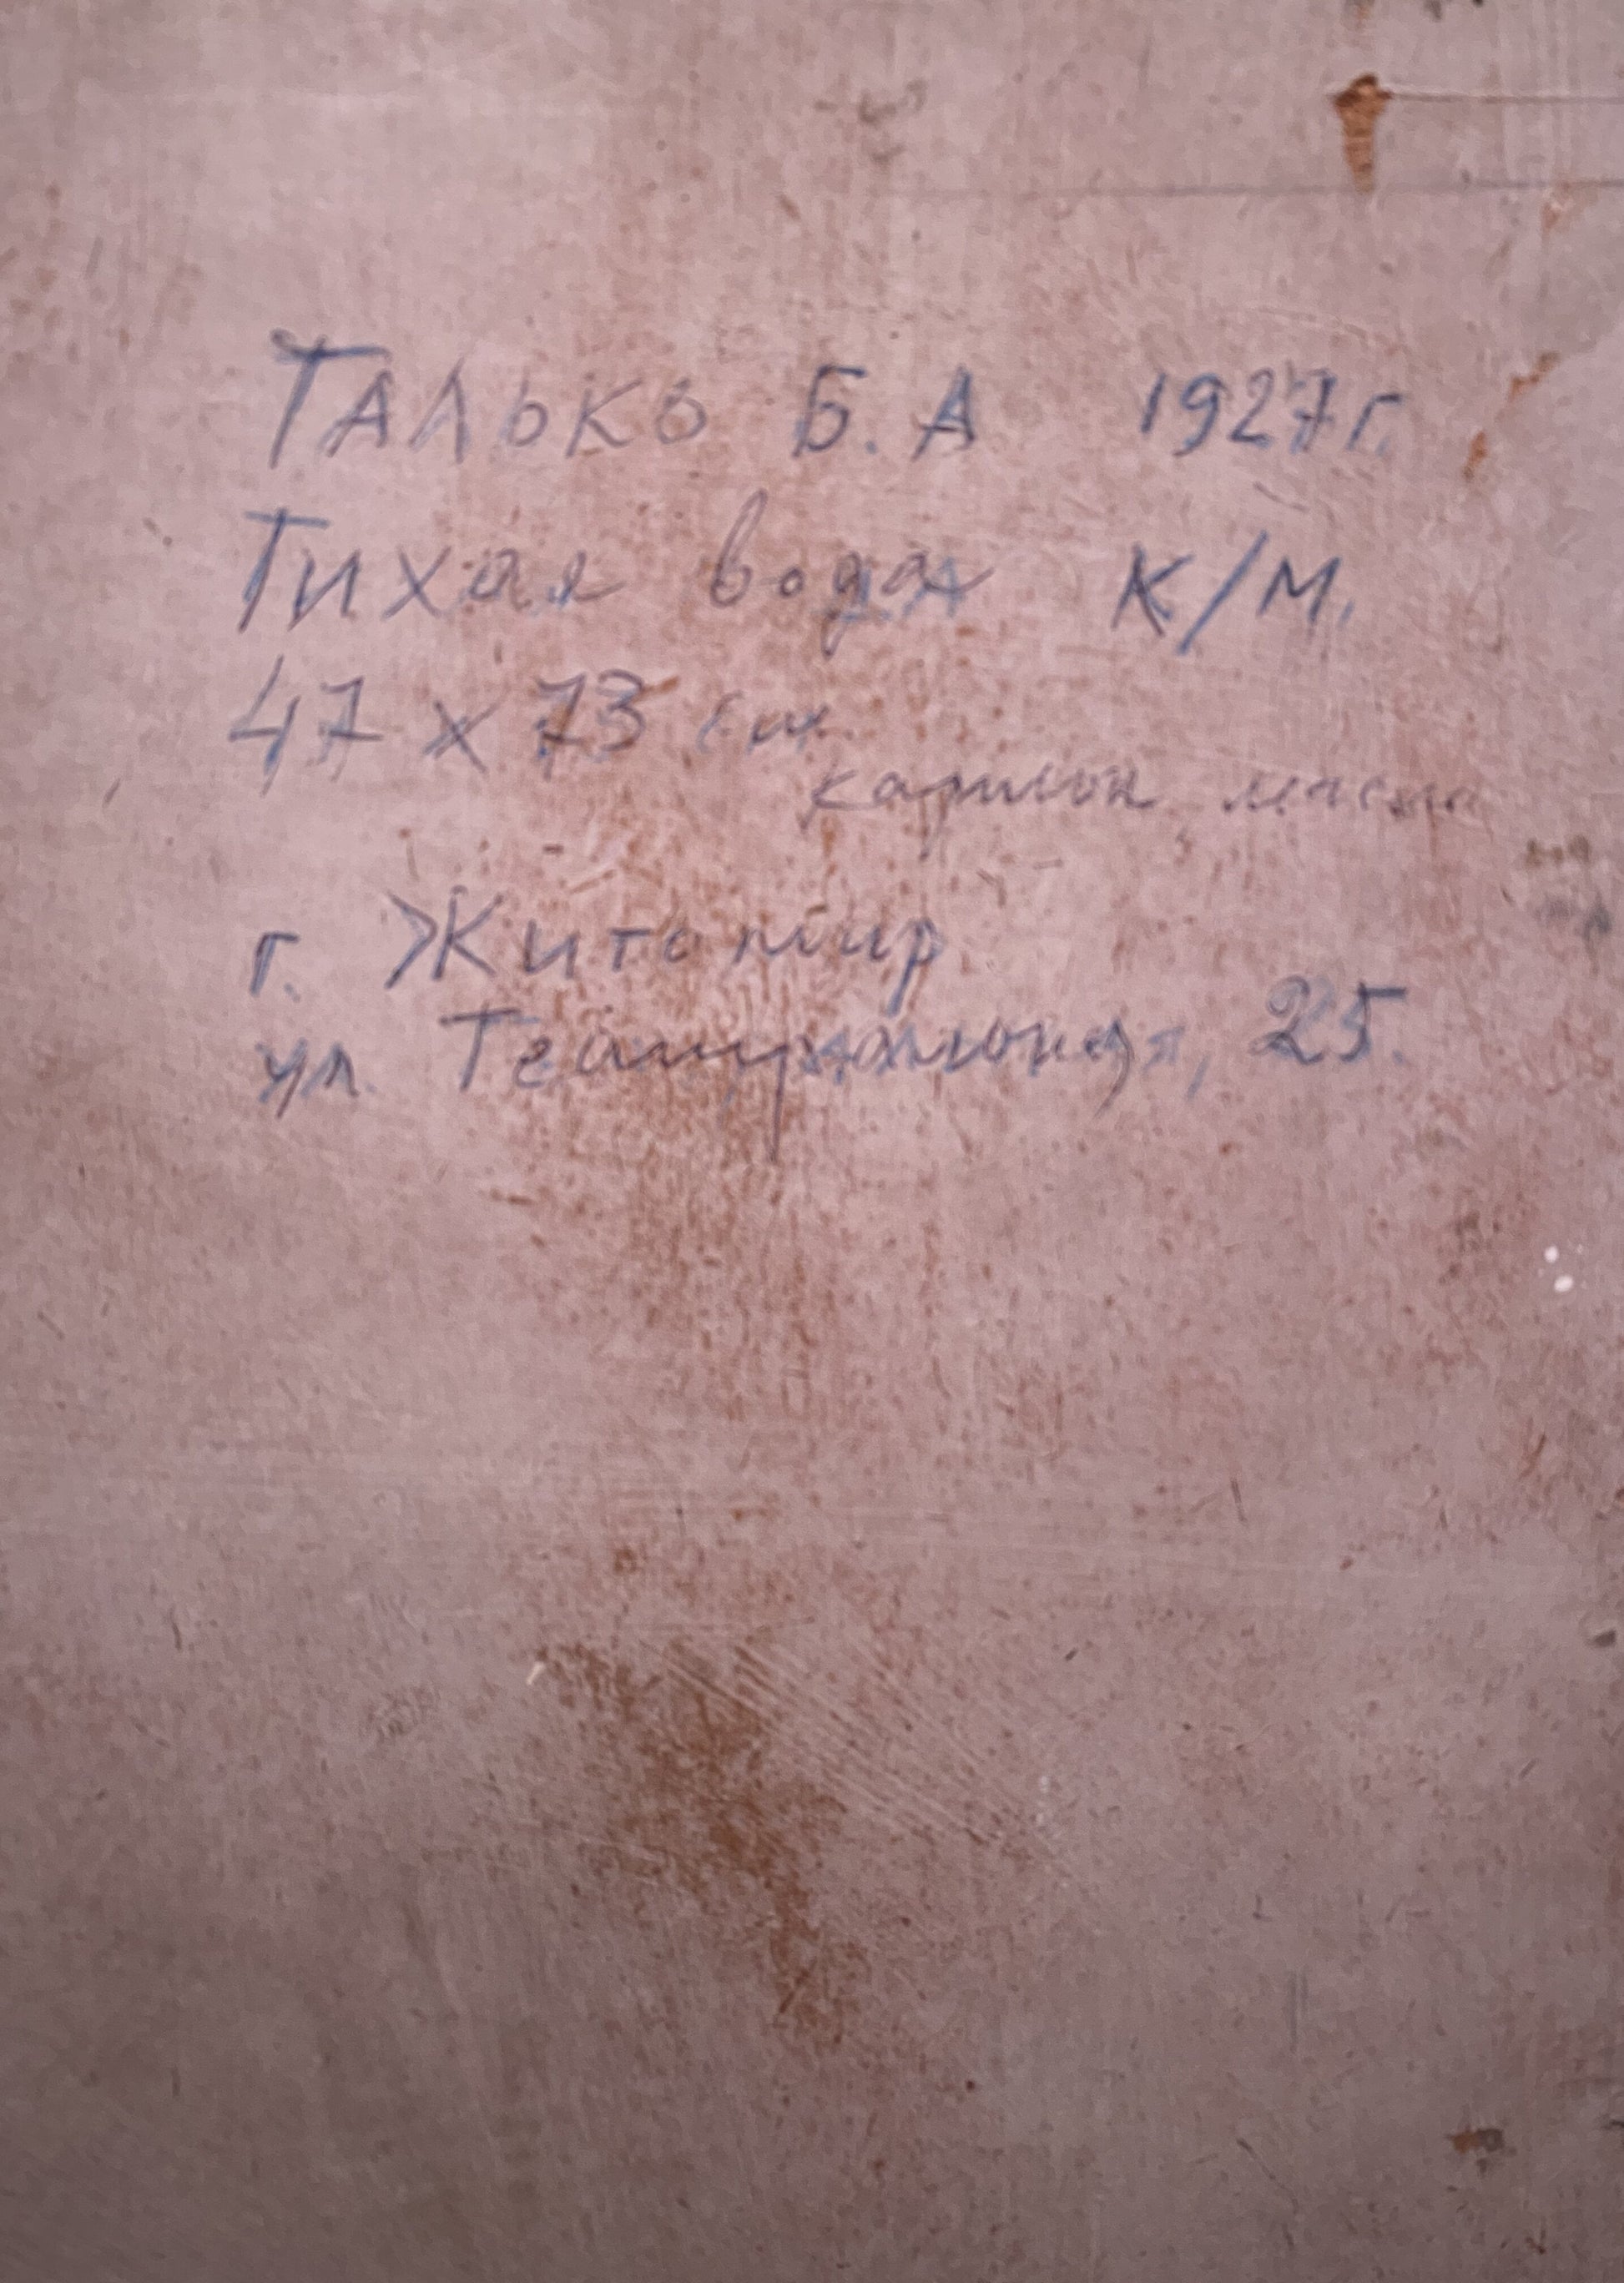 ТАЛЬКО Б. А 1927г.
Тихая вода К/М.
47 х 73 см
картон, масло
г. Житомир
ул. Театральная, 25.